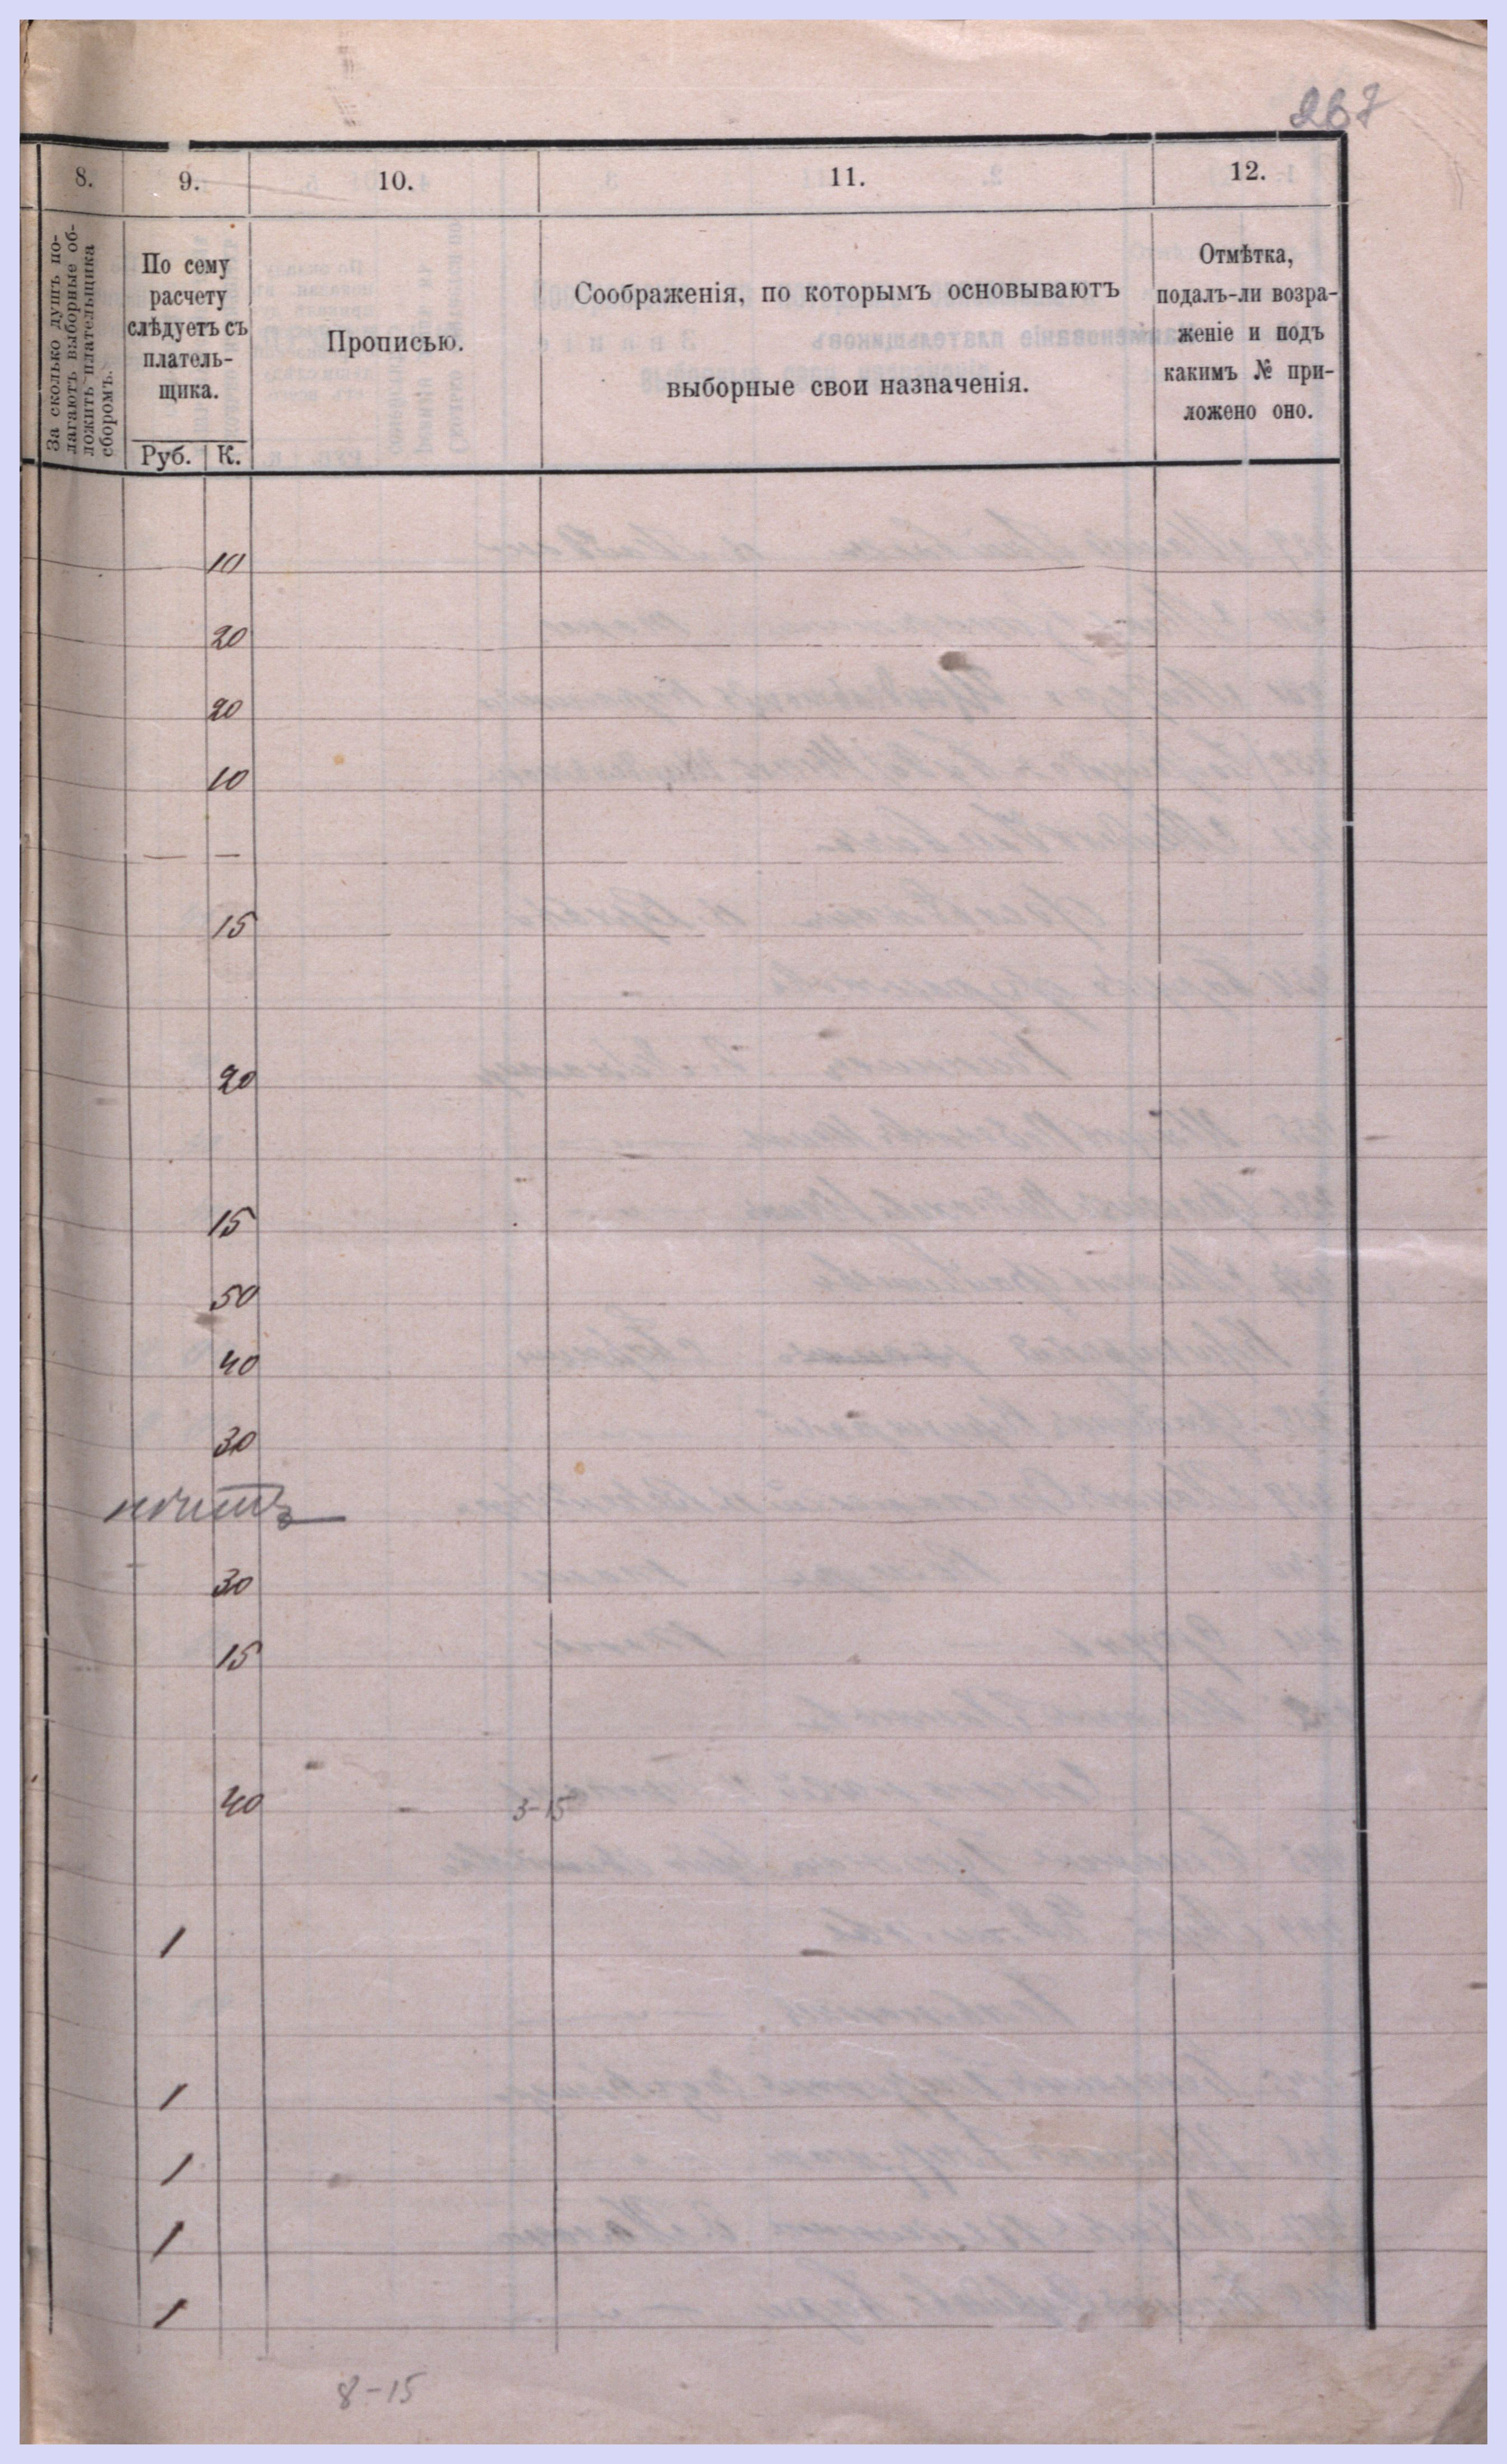 267
8. 9. 10. 11. 12.
За сколько душъ по-
лагаютъ выборные об-
ложить плательщика
сборомъ.
По сему
расчету
слѣдуетъ съ
платель-
щика.
Руб. К.
Прописью.
Соображенія, по которымъ основываютъ
выборные свои назначенія.
Отмѣтка,
подалъ-ли возра-
женіе и подъ
какимъ № при-
ложено оно.
10
20
20
10
— —
15
20
15
50
40
30
30
15
40 - 3-15
1
1
1
1
1
8-15